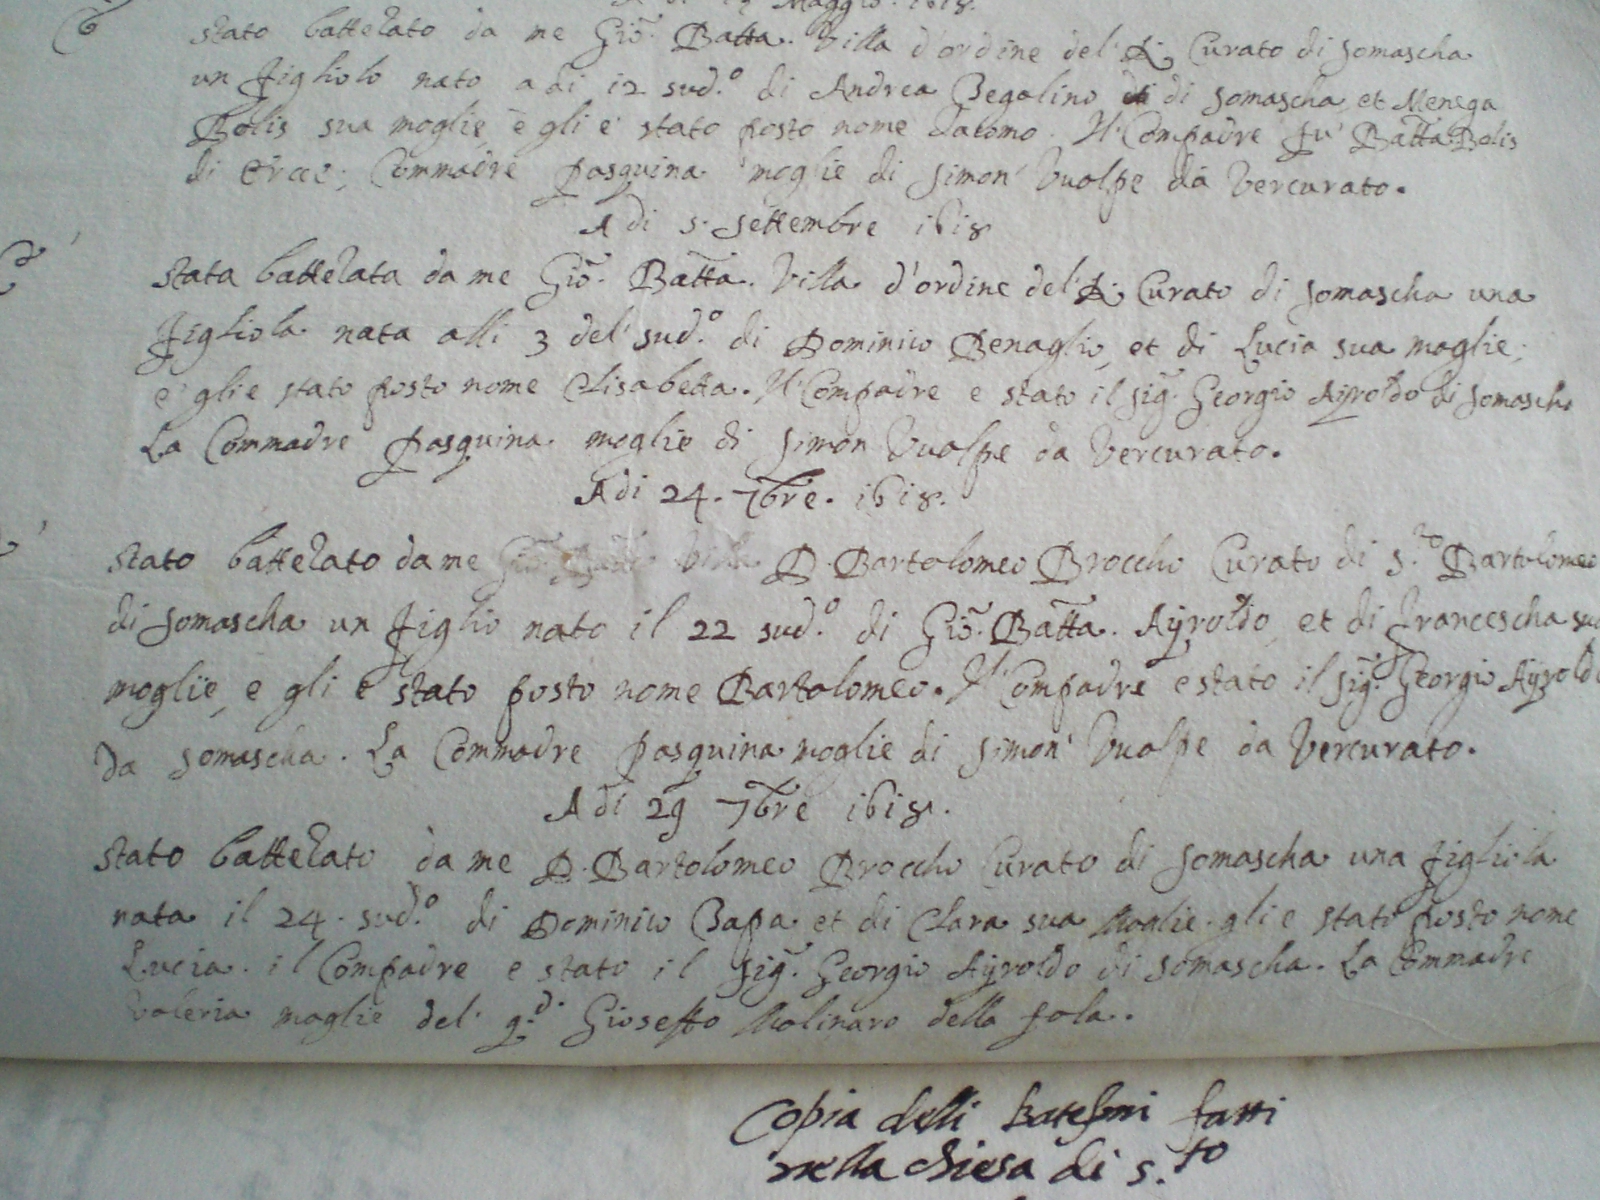 A di 19 Maggio. 1618.
stato battezato da me Gio. Batta. Villa d'ordine del R. Curato di Somascha
un figliolo nato a di 12 sud.o di Andrea Begalino di Somascha, et Menega
Bolis sua moglie, e gli e stato posto nome Jacomo. Il Compadre fu Batta Bolis
di Erce; Commadre Pasquina moglie di Simon Vualpe da Vercurato.
A di 5. Settembre 1618
stata battezata da me Gio. Batta. Villa d'ordine del R. Curato di Somascha una
figliola nata alli 3 del sud.o di Dominico Benaglio, et di Lucia sua moglie;
e gli e stato posto nome Elisabetta. Il Compadre e stato il Sig. Georgio Ayroldo di Somascha
La Commadre Pasquina moglie di Simon Vualpe da Vercurato.
A di 24. 7bre. 1618.
stato battezato da me D. Bartolomeo Broccho Curato di S.to Bartolomeo
di Somascha un figlio nato il 22 sud.o di Gio. Batta. Ayroldo, et di Francescha sua
moglie, e gli e stato posto nome Bartolomeo. Il Compadre e stato il Sig. Georgio Ayroldo
da Somascha. La Commadre Pasquina moglie di Simon Vualpe da Vercurato.
A di 29 7bre 1618.
stato battezato da me D. Bartolomeo Broccho Curato di Somascha una figliola
nata il 24. sud.o di Dominico Bapa et di Clara sua Moglie. gli e stato posto nome
Lucia. il Compadre e stato il Sig. Georgio Ayroldo di Somascha. La Commadre
Valeria moglie del q.d Gioseffo Molinaro della Sola.
Copia delli Batesmi fatti
nella chiesa di S.to